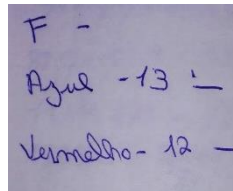 F -
Azul - 13 -
Vermelho - 12 -